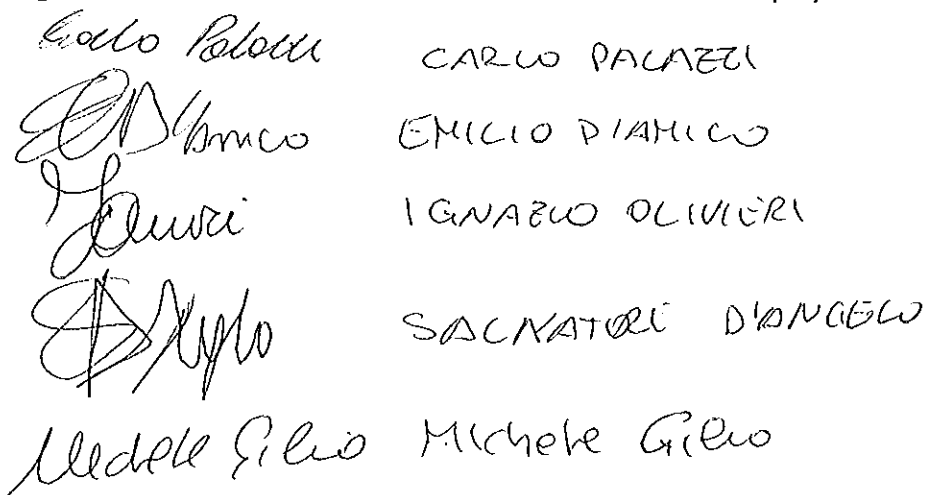 Carlo Palazzi CARLO PALAZZI
D'Amico EMILIO D'AMICO
Olivieri IGNAZIO OLIVIERI
D'Angelo SALVATORE D'ANGELO
Michele Gilio Michele Gilio